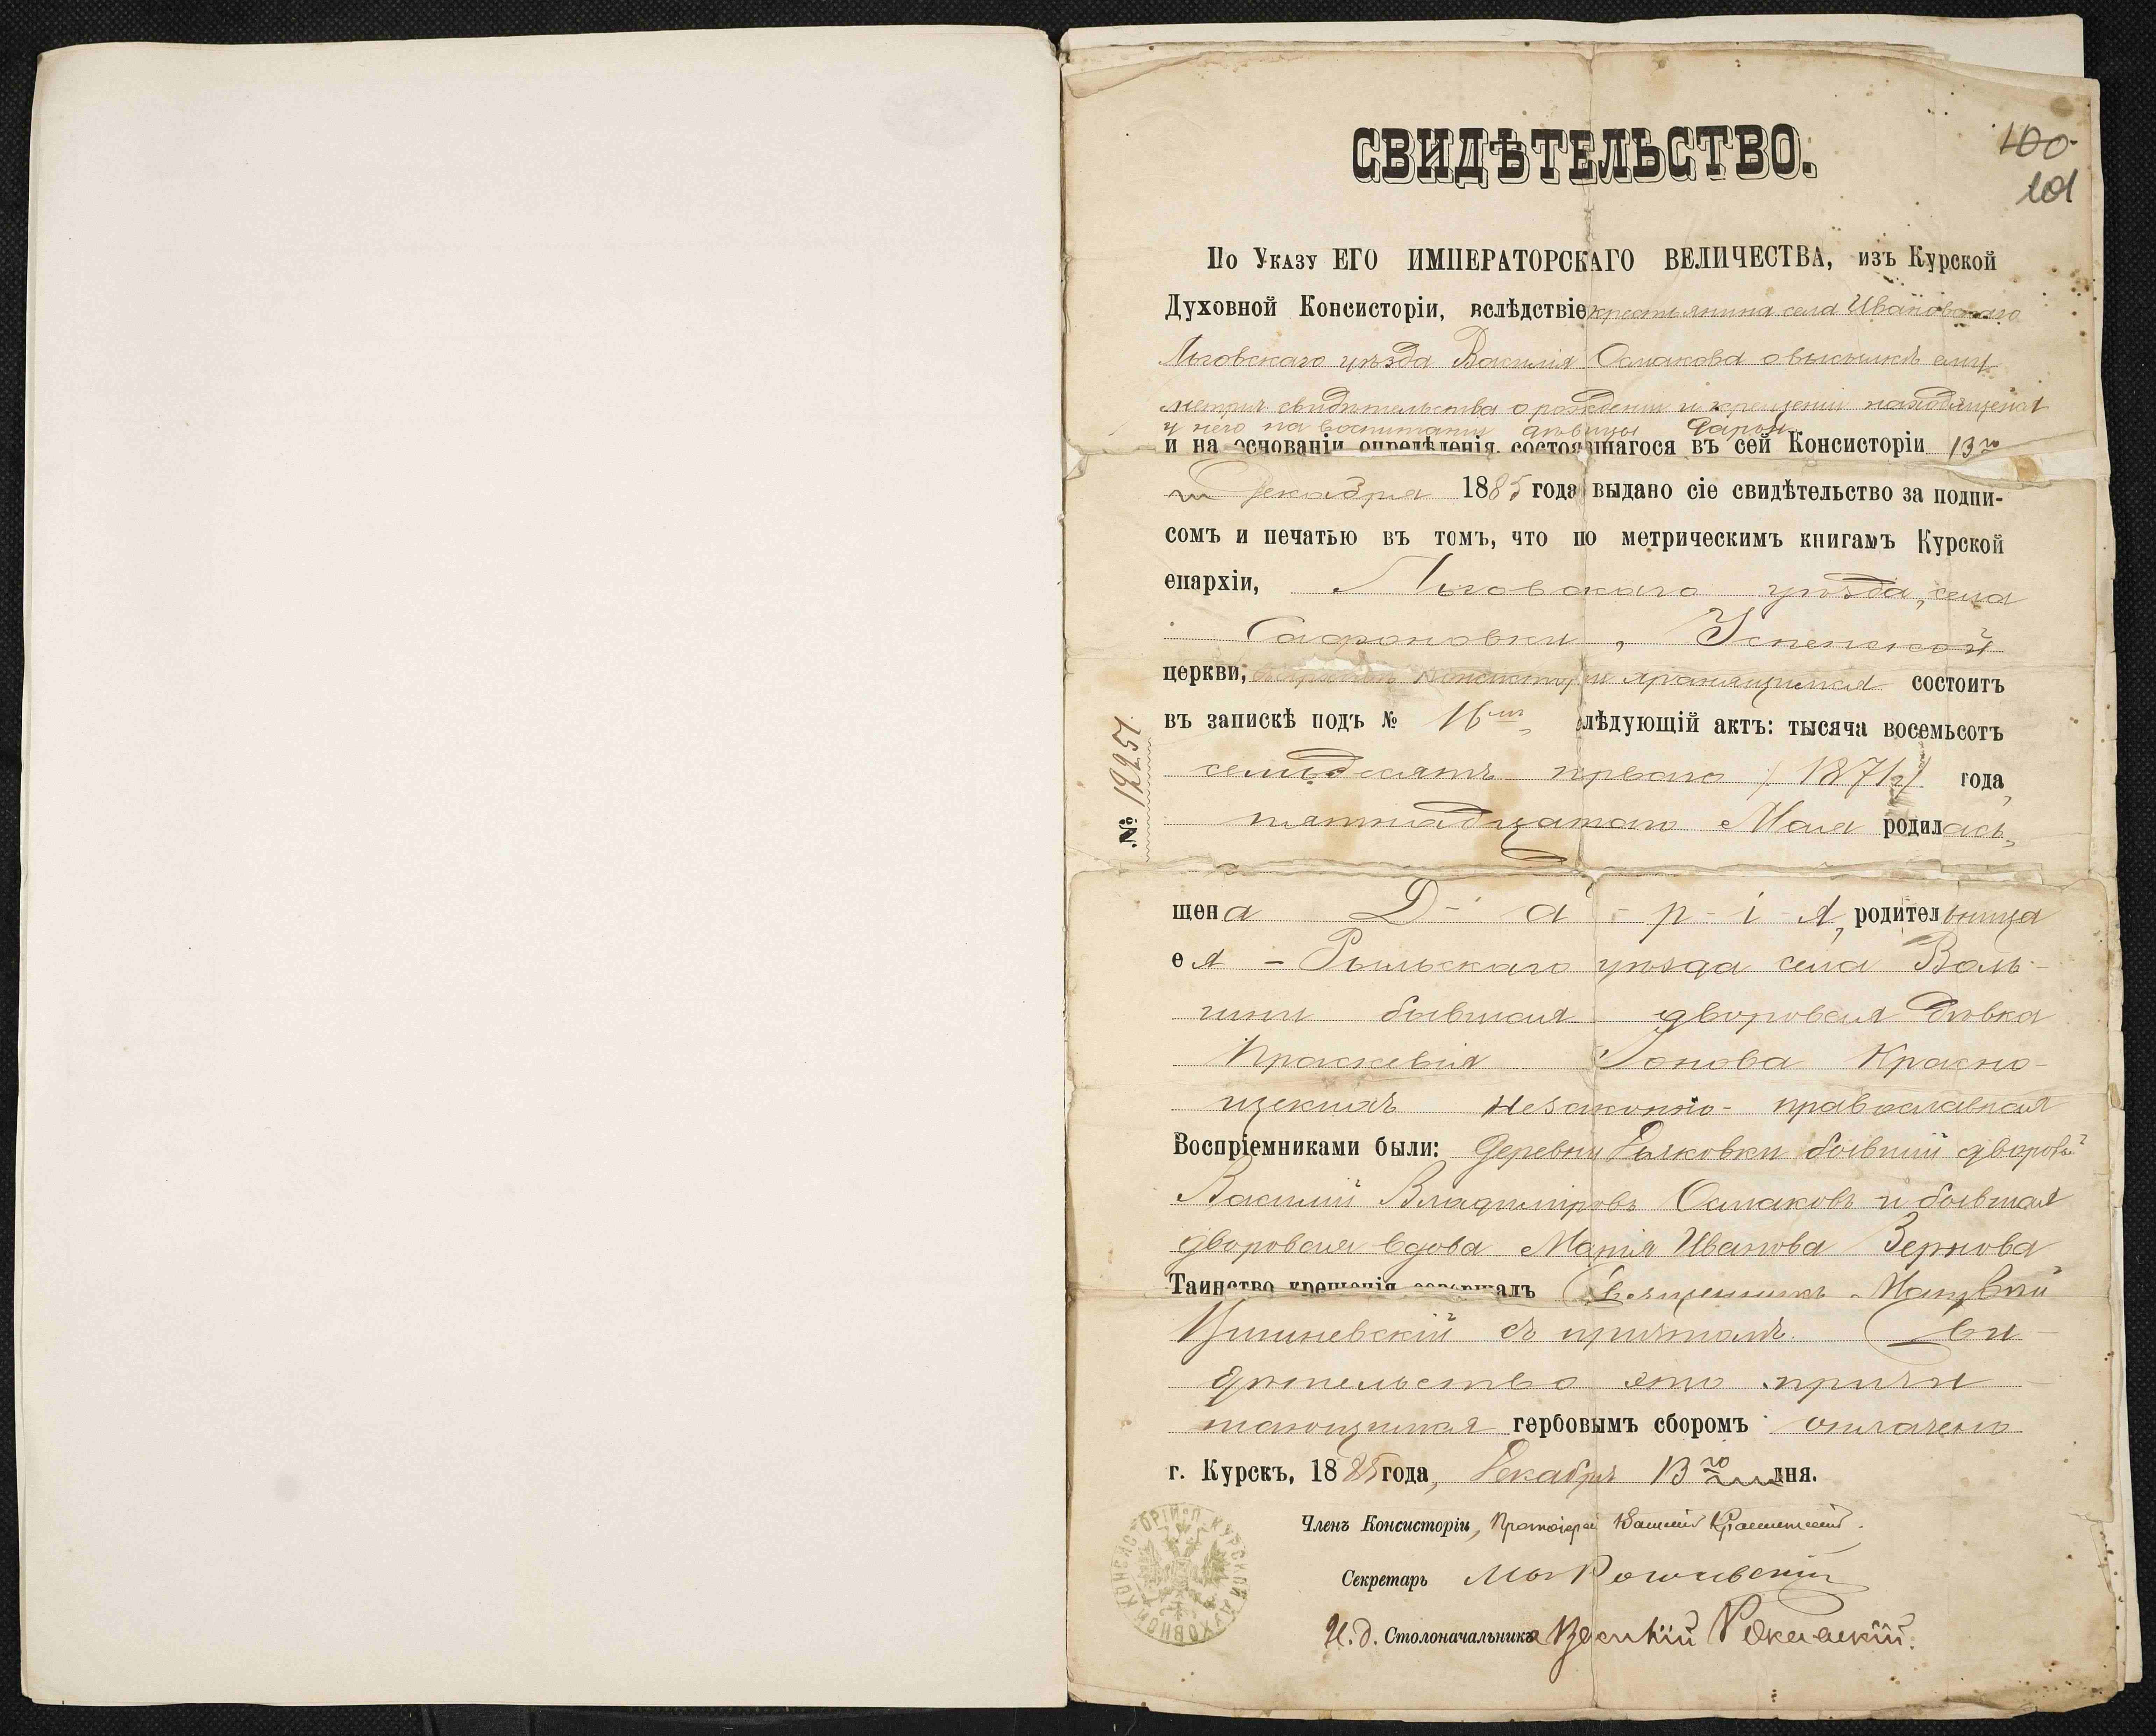 СВИДѢТЕЛЬСТВО.
100
101
По Указу ЕГО ИМПЕРАТОРСКАГО ВЕЛИЧЕСТВА, изъ Курской
Духовной Консисторіи, вслѣдствіе крестьянина села Ивановскаго
Льговскаго уѣзда Василія Осмакова о высылкѣ ему
метрич. свидѣтельства о рожденіи и крещеніи находящейся
у него на воспитаніи дѣвицы Даріи
и на основаніи опредѣленія, состоявшагося въ сей Консисторіи 13го
Декабря 1885 года выдано сіе свидѣтельство за подпи-
сомъ и печатью въ томъ, что по метрическимъ книгамъ Курской
епархіи, Льговскаго уѣзда, села
Сафоновки, Успенской
церкви, Консисторіи хранящимся состоитъ
въ запискѣ подъ № 16мъ слѣдующій актъ: тысяча восемьсотъ
семьдесятъ перваго (1871) года,
пятнадцатаго Мая родилась,
№ 12251.
щена Д-а-р-і-я, родительница
ея - Рыльскаго уѣзда села Воль-
гини бывшая дворовая дѣвка
Праскевія Іонова Красно-
щекихъ незаконно- православная
Воспріемниками были: деревни бывшій дворовый
Василій Владиміровъ Осмаковъ и бывшая
дворовая вдова Марія Иванова Зернова
Таинство крещенія совершалъ Священникъ
съ причтомъ. Сви-
дѣтельство это причи
тающимся гербовымъ сборомъ оплачено
г. Курскъ, 1885 года, Декабря 13го дня.
Членъ Консисторіи, Протоіерей Василій
Секретарь
И. д. Столоначальника
КУРСКОЙ ДУХОВНОЙ КОНСИСТОРІИ